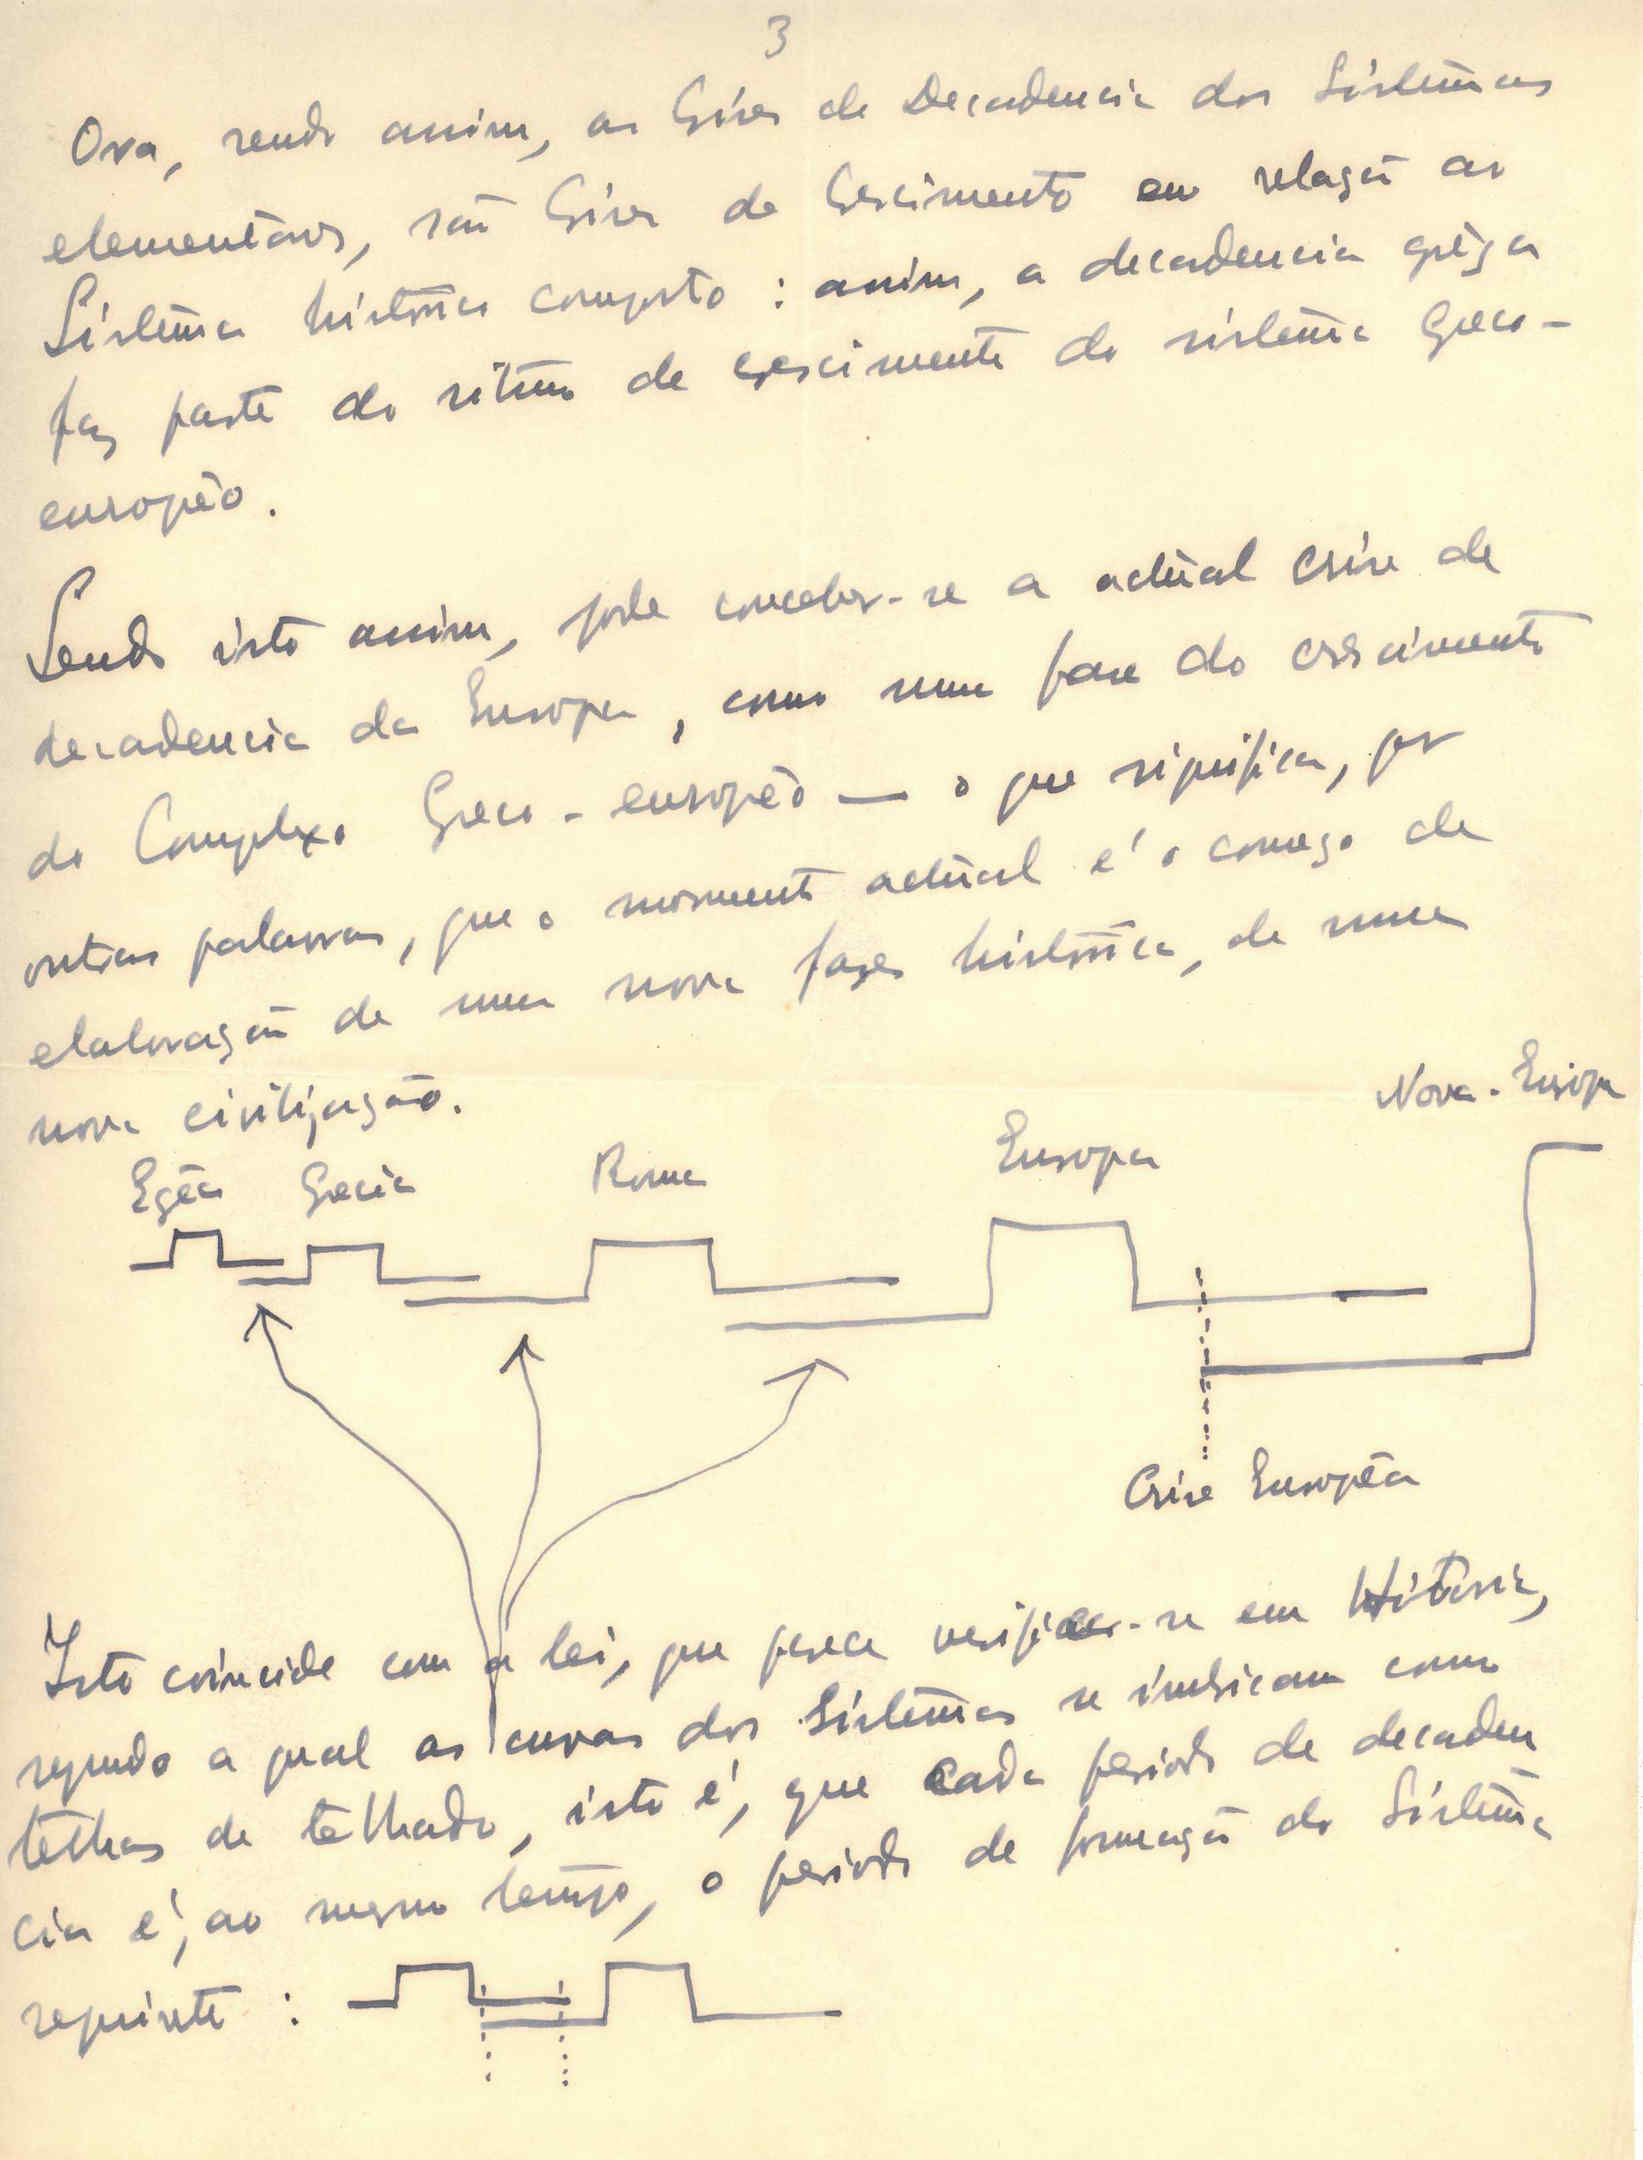 3
Ora, sendo assim, as Crises de Decadencia dos Sistemas
elementares, são Crises de Crescimento em relação ao
Sistema histórico composto : assim, a decadencia grega
faz parte do ritmo de crescimento do sistema Greco-
europêo.
Sendo isto assim, pode conceber-se a actual crise de
decadencia da Europa, como uma fase do crescimento
do Complexo Greco-europêo — o que significa, por
outras palavras, que o momento actual é o começo de
elaboração de uma nova fase histórica, de uma
nova civilização.
Nova-Europa
Egêa Grecia Roma Europa
Crise Européa
Isto coincide com a lei, que parece verificar-se em História,
segundo a qual as curvas dos Sistemas se imbricam como
telhas de telhado, isto é, que cada periodo de decaden
cia é, ao mesmo tempo, o periodo de formação do Sistema
seguinte :